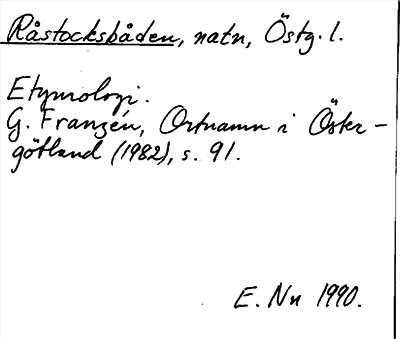 Råstocksbåden, natn, Östg. l.
Etymologi.
G. Franzén, Ortnamn i Öster-
götland (1982), s. 91.
E. Nn 1990.